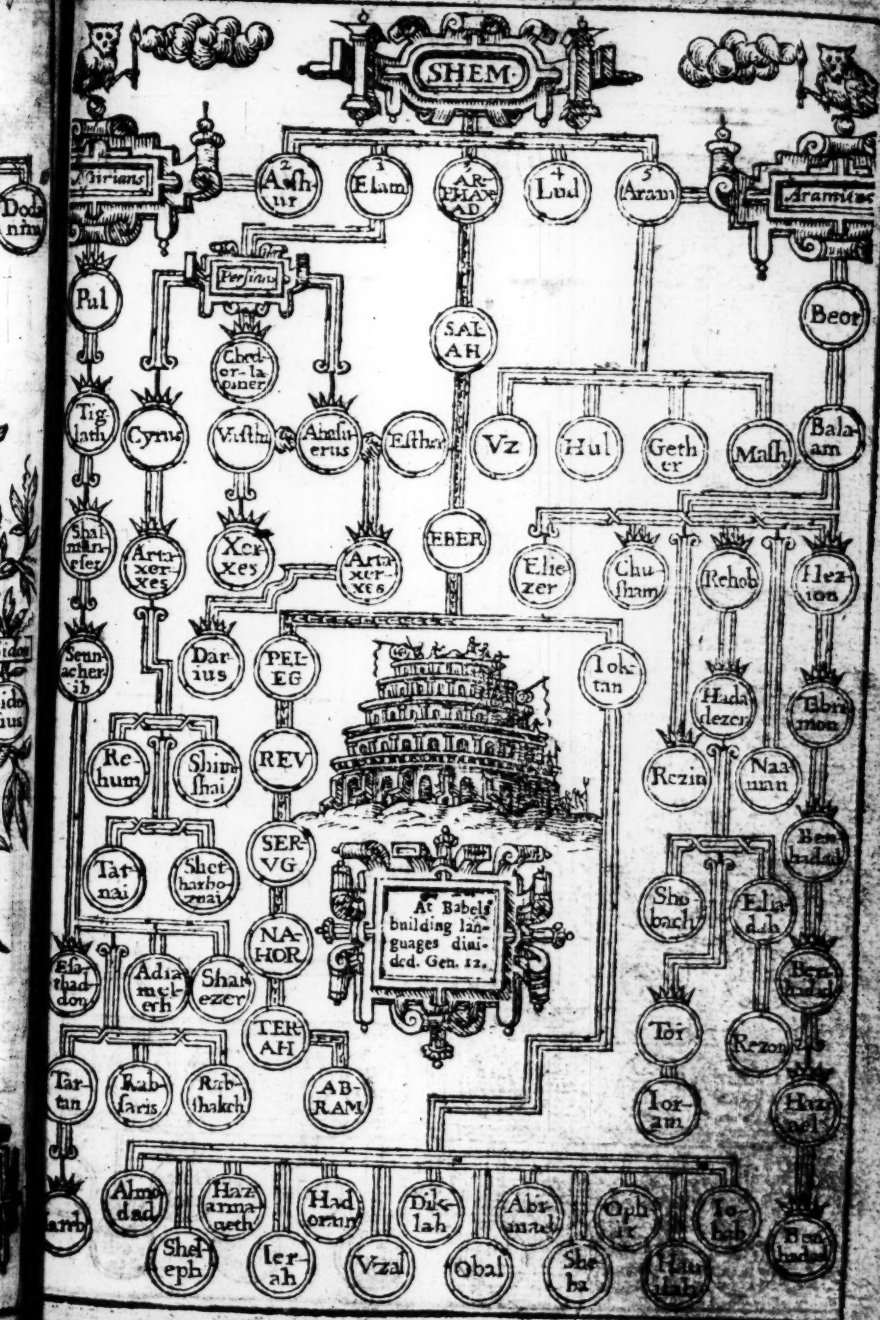 SHEM.
2
Aſsh-
ur
1
Elam
AR-
PHAX
AD
4
Lud
5
Aram
Aramites
Doda
nim
Perſians
Pul
Ched-
or-la-
omer
SAL
AH
Beor
Tig-
lath
Cyrus
Vaſthi
Ahaſu-
erus
Eſther
Vz
Hul
Geth
er
Maſh
Bala-
am
Shal
man-
eſer
Arta-
xer-
xes
Xer-
xes
Arta
xer-
xes
EBER
Elie-
zer
Chu-
ſham
Rehob
Hez-
ion
Senn-
acher-
ib
Dar-
ius
PEL-
EG
Iok-
tan
Hada
dezer
Tabri
mon
Re-
hum
Shim
ſhai
REV
Rezin
Naa-
man
Tat-
nai
Shet-
harbo-
znai
SER-
VG
Ben-
hadad
At Babels
building lan-
guages diui-
ded. Gen. 12.
Sho-
bach
Elia-
dah
Eſar-
had-
don
Adra
mel-
ech
Shar
ezer
NA-
HOR
Ben-
hadad
TER-
AH
Toi
Rezon
Tar-
tan
Rab-
ſaris
Rab-
ſhakeh
AB-
RAM
Ior-
am
Haz-
ael
Almo-
dad
Haz
arma-
veth
Had
oram
Dik-
lah
Abi-
mael
Oph-
ir
Io-
bab
Ben-
hadad
Shel-
eph
Ier-
ah
Vzal
Obal
She-
ba
Hau-
ilah